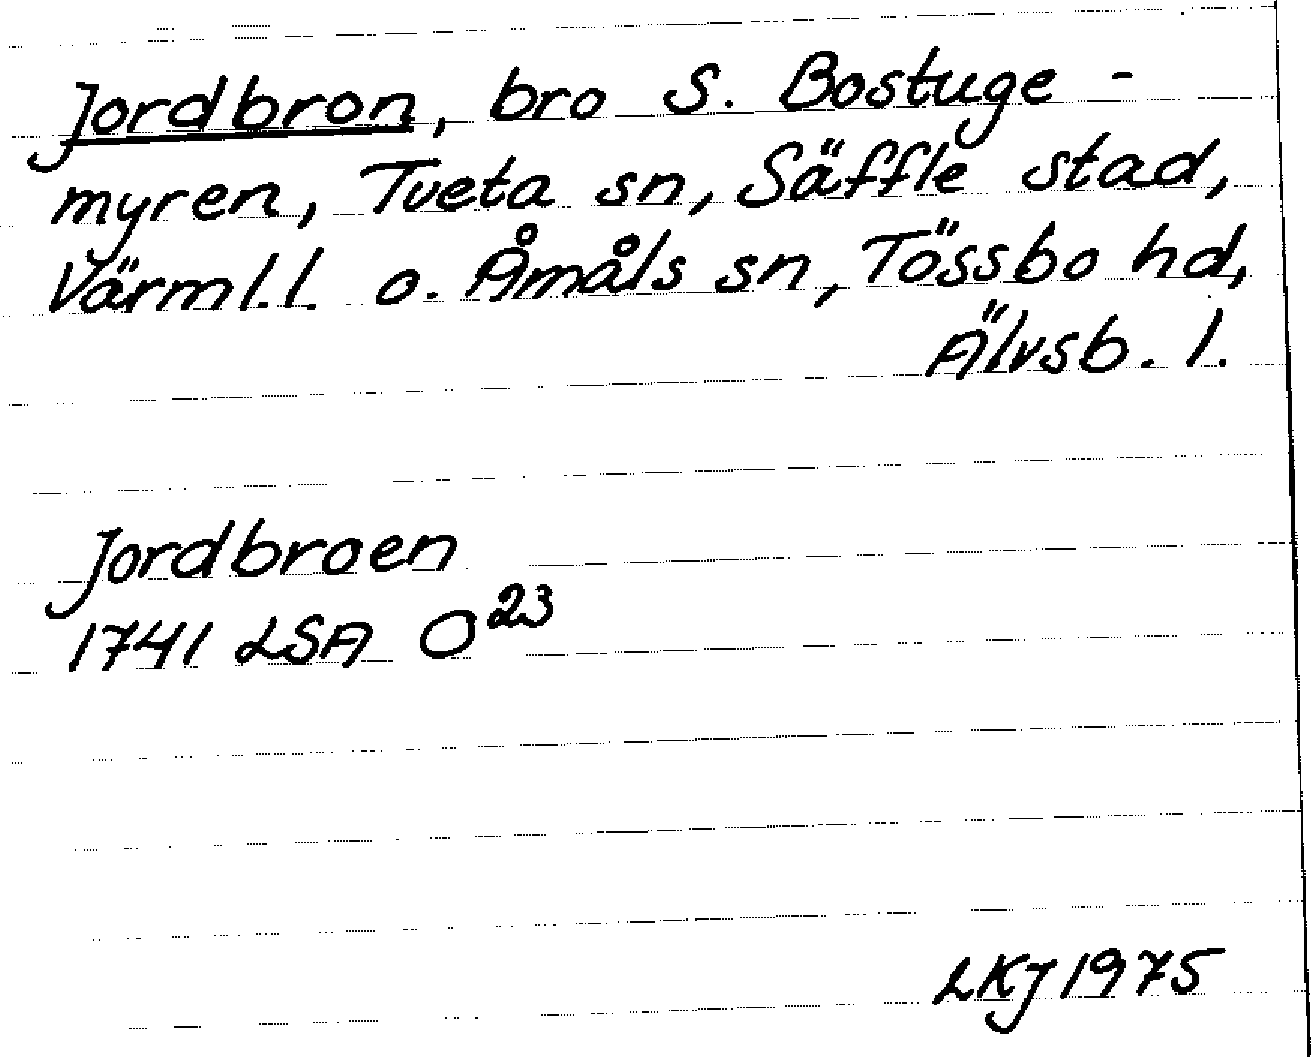 Jordbron, bro S. Bostuge-
myren, Tveta sn, Säffle stad,
Värml.l. o. Åmåls sn, Tössbo hd,
Älvsb. l.
Jordbroen
1741 LSA O²³
LKJ 1975